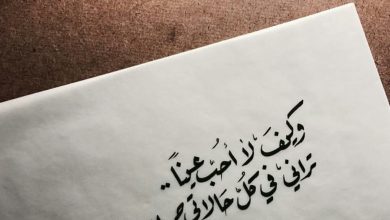 وَكيفَ لا أحُب عينًا..
تراني في كلُ حالاتي